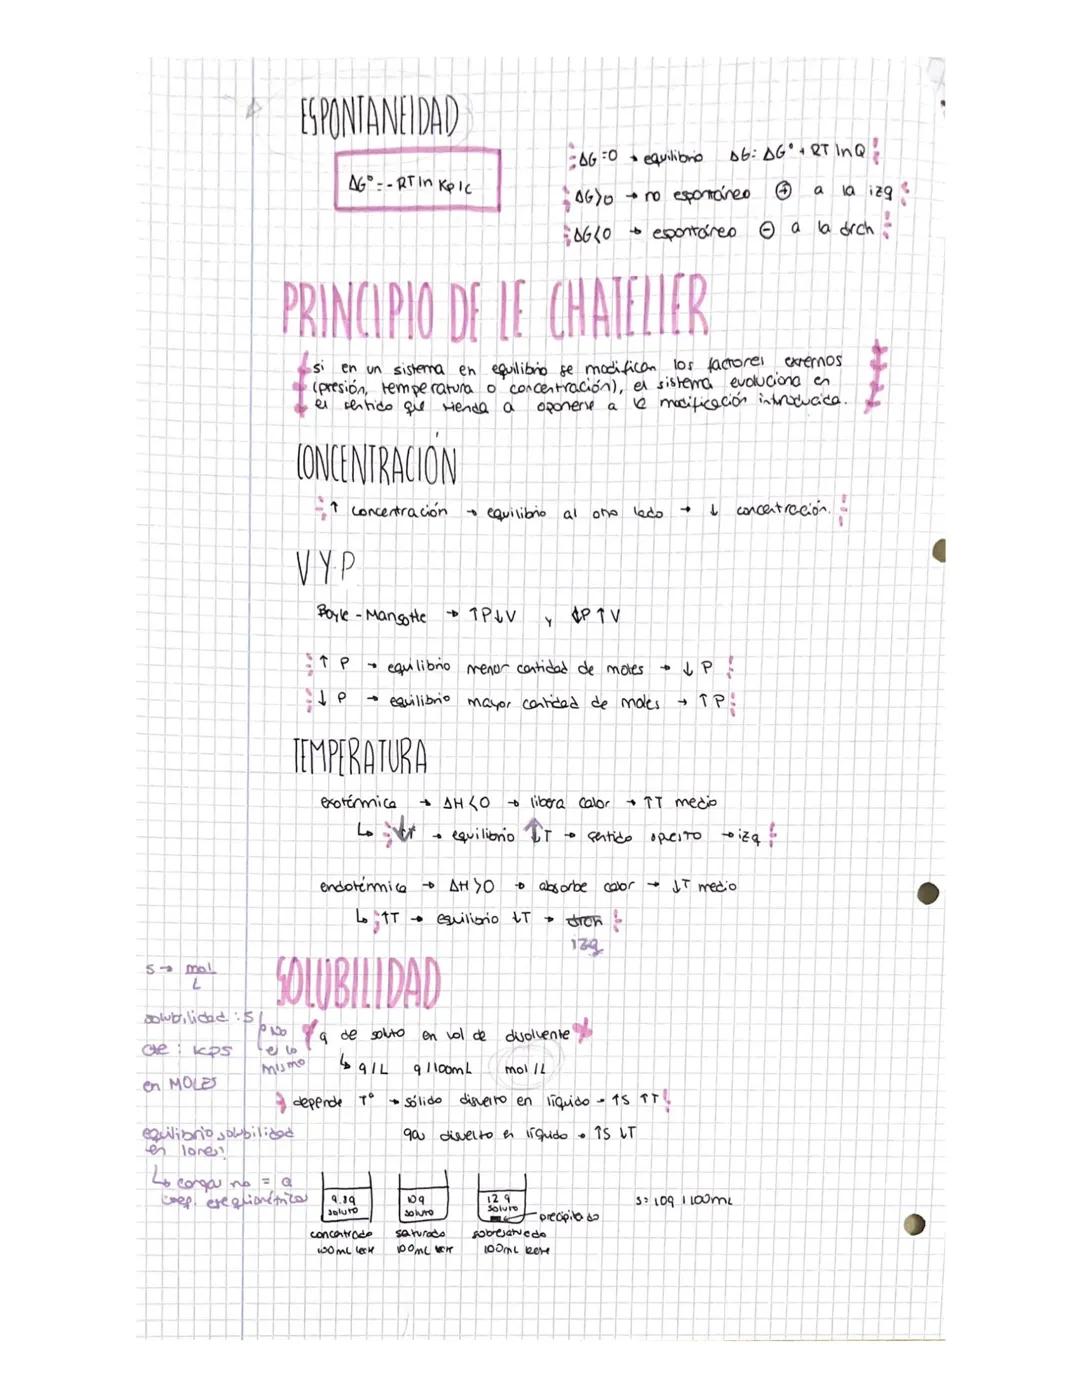 ESPONTANEIDAD
ΔG° = - RT ln Kp/c
ΔG = 0 → equilibrio ΔG: ΔG° + RT ln Q
ΔG>0 → no espontáneo ⊕ a la izq
ΔG<0 → espontáneo ⊖ a la drch
PRINCIPIO DE LE CHATELIER
si en un sistema en equilibrio se modifican los factores externos
(presión, temperatura o concentración), el sistema evoluciona en
el sentido que tienda a oponerse a la modificación introducida.
CONCENTRACIÓN
↑ concentración → equilibrio al otro lado → ↓ concentración.
V Y P
Boyle - Mariotte → ↑P↓V y ↓P↑V
↑ P → equilibrio menor cantidad de moles → ↓ P
↓ P → equilibrio mayor cantidad de moles → ↑ P
TEMPERATURA
exotérmica → ΔH<0 → libera calor → ↑T medio
↳ ↓T → equilibrio ↑T → sentido → izq
endotérmica → ΔH>0 → absorbe calor → ↓T medio
↳ ↑T → equilibrio ↓T → drch
izq
SOLUBILIDAD
s → mol
L
solubilidad : S
cte : Kps
en MOLES
no
es lo
mismo
q de soluto en vol de disolvente
↳ g/L g/100mL mol/L
depende Tª → sólido disuelto en líquido → ↑S ↑T
gas disuelto en líquido → ↑S ↓T
equilibrio solubilidad
en iones:
↳ carga no = a
coef. estequiométrico
9.8g
soluto
concentrado
100mL leche
10g
soluto
saturado
100mL leche
12 g
soluto
precipitado
sobresaturado
100mL leche
s= 10g / 100mL